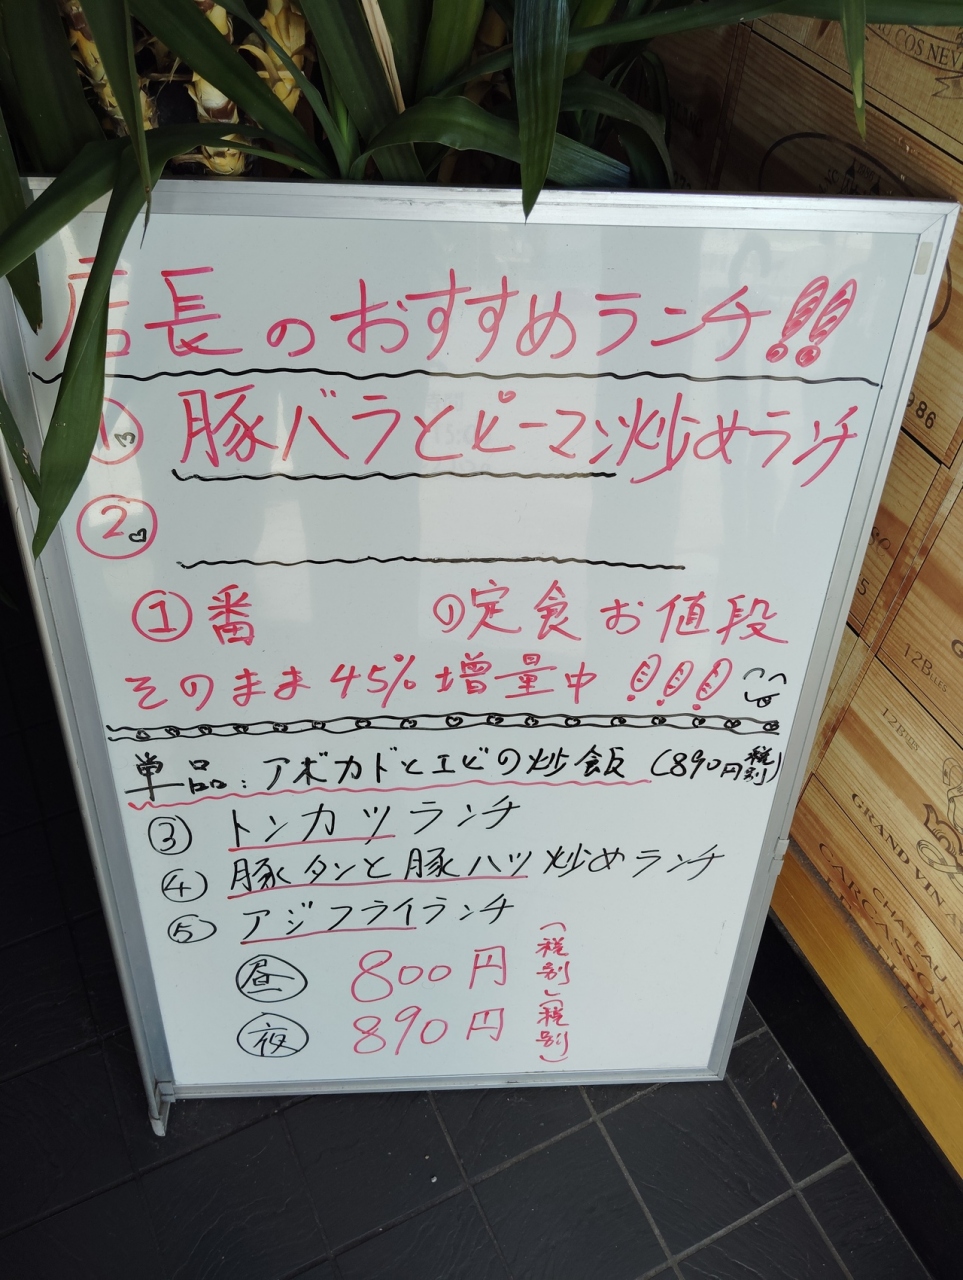 店長のおすすめランチ!!
① 豚バラとピーマン炒めランチ
②
①番 の定食お値段
そのまま45%増量中!!!
単品:アボカドとエビの炒飯(890円税別)
③ トンカツランチ
④ 豚タンと豚ハツ炒めランチ
⑤ アジフライランチ
昼 800円(税別)
夜 890円(税別)
COS
986
12B
GRAND VIN
CHATEAU
CARCASSONN